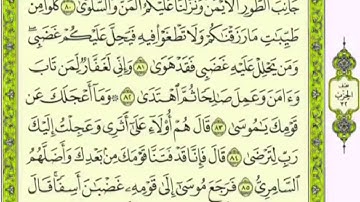 جَانِبَ الطُّورِ الْأَيْمَنَ وَنَزَّلْنَا عَلَيْكُمُ الْمَنَّ وَالسَّلْوَىٰ ٨٠ كُلُوا مِن
طَيِّبَاتِ مَا رَزَقْنَاكُمْ وَلَا تَطْغَوْا فِيهِ فَيَحِلَّ عَلَيْكُمْ غَضَبِي ۖ
وَمَن يَحْلِلْ عَلَيْهِ غَضَبِي فَقَدْ هَوَىٰ ٨١ وَإِنِّي لَغَفَّارٌ لِّمَن تَابَ
وَءَامَنَ وَعَمِلَ صَالِحًا ثُمَّ اهْتَدَىٰ ٨٢ ۞ وَمَا أَعْجَلَكَ عَن
قَوْمِكَ يَا مُوسَىٰ ٨٣ قَالَ هُمْ أُولَاءِ عَلَىٰ أَثَرِي وَعَجِلْتُ إِلَيْكَ
رَبِّ لِتَرْضَىٰ ٨٤ قَالَ فَإِنَّا قَدْ فَتَنَّا قَوْمَكَ مِن بَعْدِكَ وَأَضَلَّهُمُ
السَّامِرِيُّ ٨٥ فَرَجَعَ مُوسَىٰ إِلَىٰ قَوْمِهِ غَضْبَانَ أَسِفًا ۚ قَالَ
الحزب
٣٢